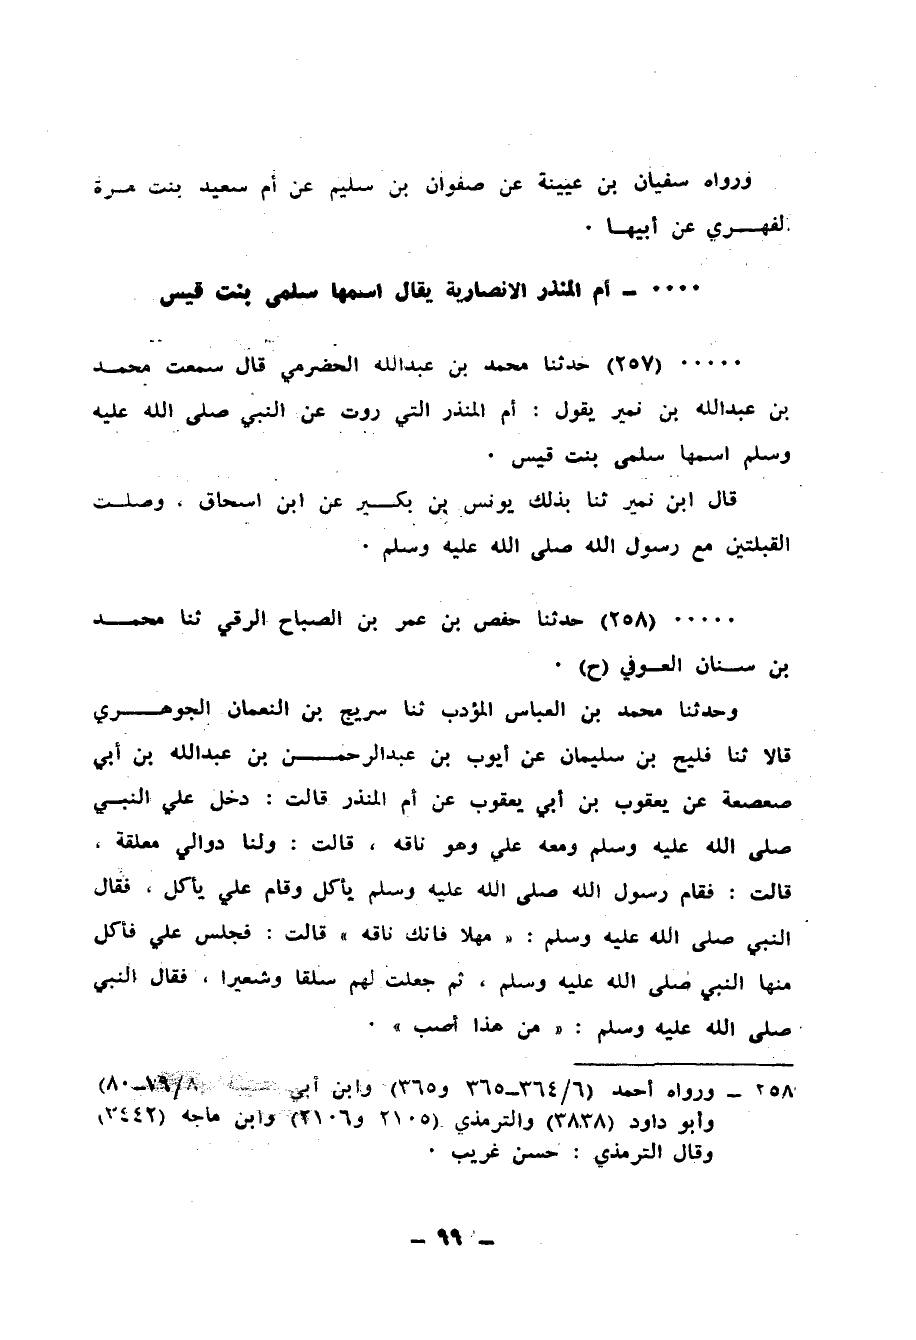 ورواه سفيان بن عيينة عن صفوان بن سليم عن أم سعيد بنت مرة
الفهري عن أبيها .
٠٠٠٠ ــ أم المنذر الانصارية يقال اسمها سلمى بنت قيس
٠٠٠٠٠ (٢٥٧) حدثنا محمد بن عبدالله الحضرمي قال سمعت محمد
بن عبدالله بن نمير يقول : أم المنذر التي روت عن النبي صلى الله عليه
وسلم اسمها سلمى بنت قيس .
قال ابن نمير ثنا بذلك يونس بن بكير عن ابن اسحاق ، وصلت
القبلتين مع رسول الله صلى الله عليه وسلم .
٠٠٠٠٠ (٢٥٨) حدثنا حفص بن عمر بن الصباح الرقي ثنا محمد
بن سنان العوفي (ح) .
وحدثنا محمد بن العباس المؤدب ثنا سريج بن النعمان الجوهري
قالا ثنا فليح بن سليمان عن أيوب بن عبدالرحمن بن عبدالله بن أبي
صعصعة عن يعقوب بن أبي يعقوب عن أم المنذر قالت : دخل علي النبي
صلى الله عليه وسلم ومعه علي وهو ناقه ، قالت : ولنا دوالي معلقة ،
قالت : فقام رسول الله صلى الله عليه وسلم يأكل وقام علي يأكل ، فقال
النبي صلى الله عليه وسلم : « مهلا فانك ناقه » قالت : فجلس علي فأكل
منها النبي صلى الله عليه وسلم ، ثم جعلت لهم سلقا وشعيرا ، فقال النبي
صلى الله عليه وسلم : « من هذا أصب » .
٢٥٨ ــ ورواه أحمد (٣٦٤/٦ــ٣٦٥ و٣٦٥) وابن أبي ٧٩/٨ــ٨٠)
وأبو داود (٣٨٣٨) والترمذي (٢١٠٥ و٢١٠٦) وابن ماجه (٣٤٤٢)
وقال الترمذي : حسن غريب .
ــ ٩٩ ــ